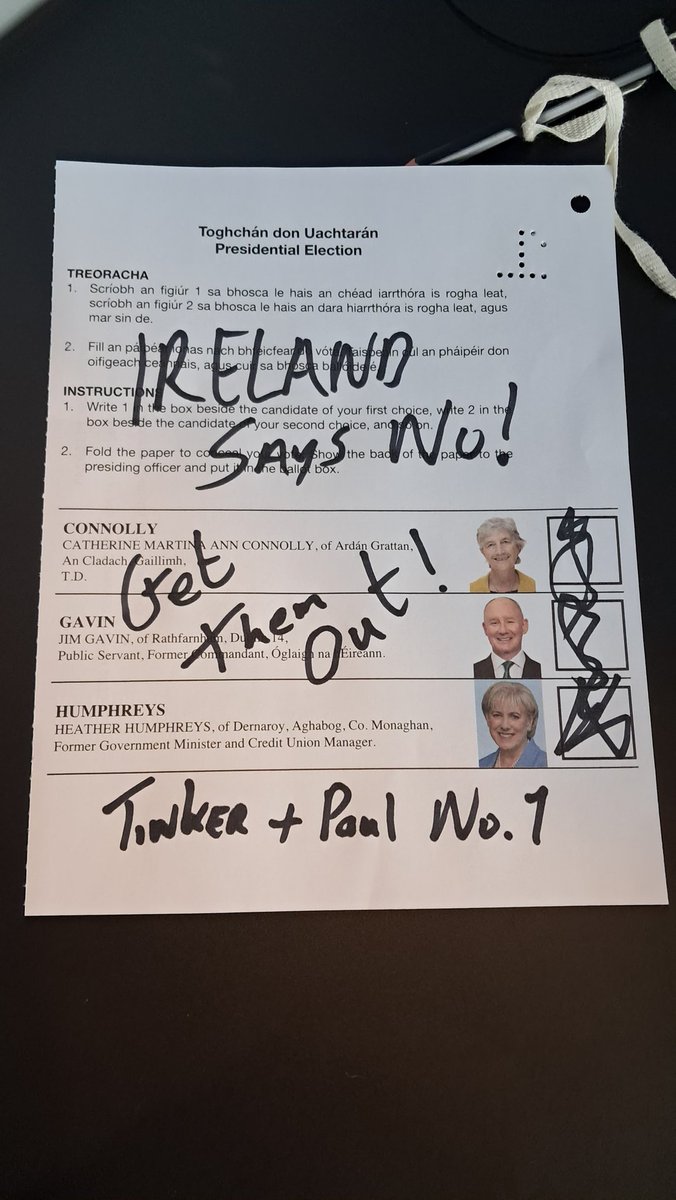 Toghchán don Uachtarán
Presidential Election
TREORACHA
1. Scríobh an figiúr 1 sa bhosca le hais an chéad iarrthóra is rogha leat,
scríobh an figiúr 2 sa bhosca le hais an dara hiarrthóra is rogha leat, agus
mar sin de.
2. Fill an páipéar ionas nach bhfeicfear do vóta. Taispeáin cúl an pháipéir don
oifigeach ceannais, agus cuir sa bhosca ballóide é.
IRELAND
INSTRUCTIONS
1. Write 1 in the box beside the candidate of your first choice, write 2 in the
box beside the candidate of your second choice, and so on.
SAYS No!
2. Fold the paper to conceal your vote. Show the back of the paper to the
presiding officer and put it in the ballot box.
CONNOLLY
CATHERINE MARTINA ANN CONNOLLY, of Ardán Grattan,
An Cladach, Gaillimh,
T.D.
Get
Them
Out!
GAVIN
JIM GAVIN, of Rathfarnham, Dublin 14,
Public Servant, Former Commandant, Óglaigh na hÉireann.
HUMPHREYS
HEATHER HUMPHREYS, of Dernaroy, Aghabog, Co. Monaghan,
Former Government Minister and Credit Union Manager.
TINKER + Paul No. 1